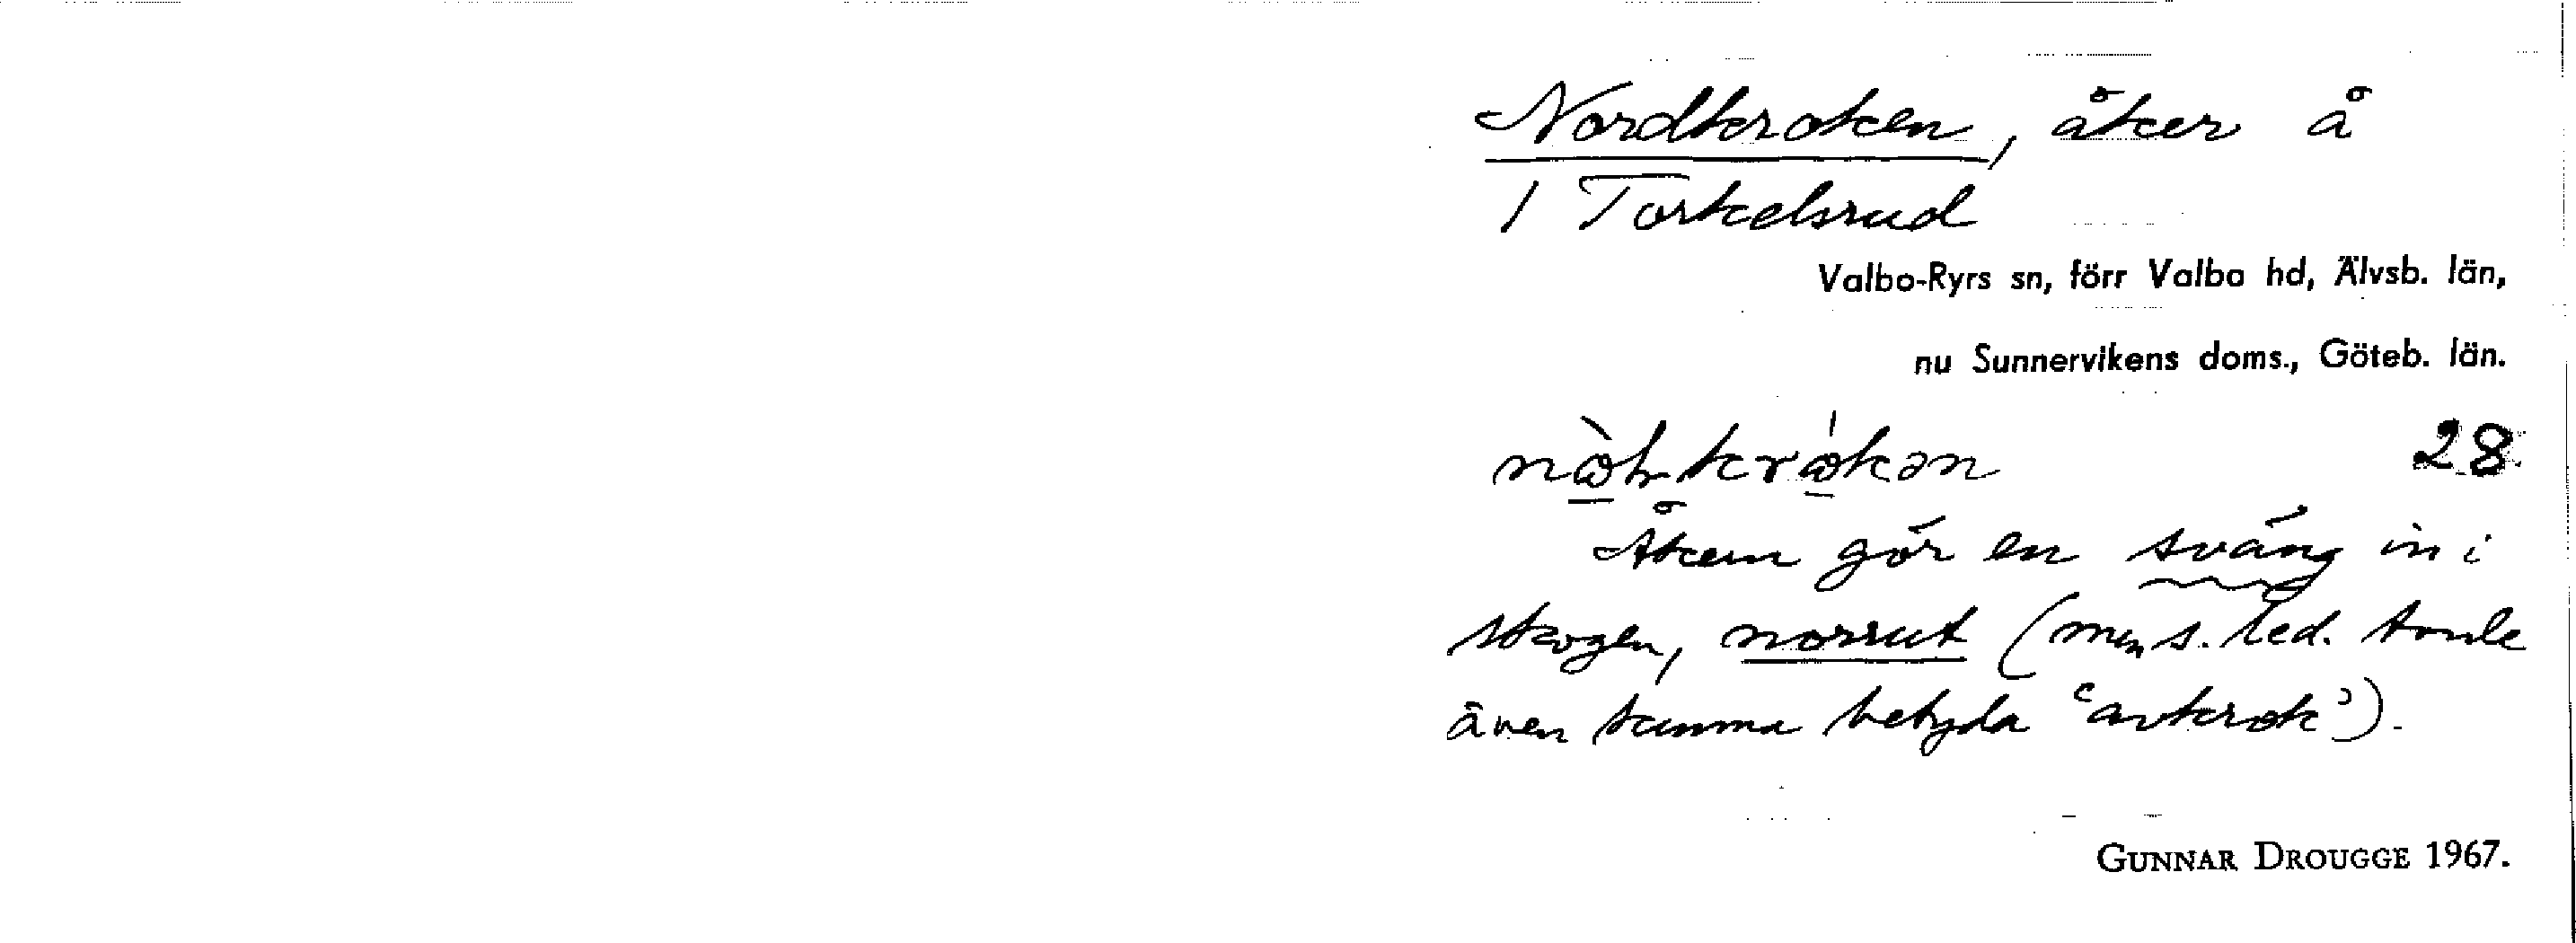 Nordkroken, åker å
1 Torkelsrud
Valbo-Ryrs sn, förr Valbo hd, Älvsb. län,
nu Sunnervikens doms., Göteb. län.
28
Åkern gör en sväng in i
skogen, norrut (men s. led. torde
även kunna betyda "avkrok").
GUNNAR DROUGGE 1967.